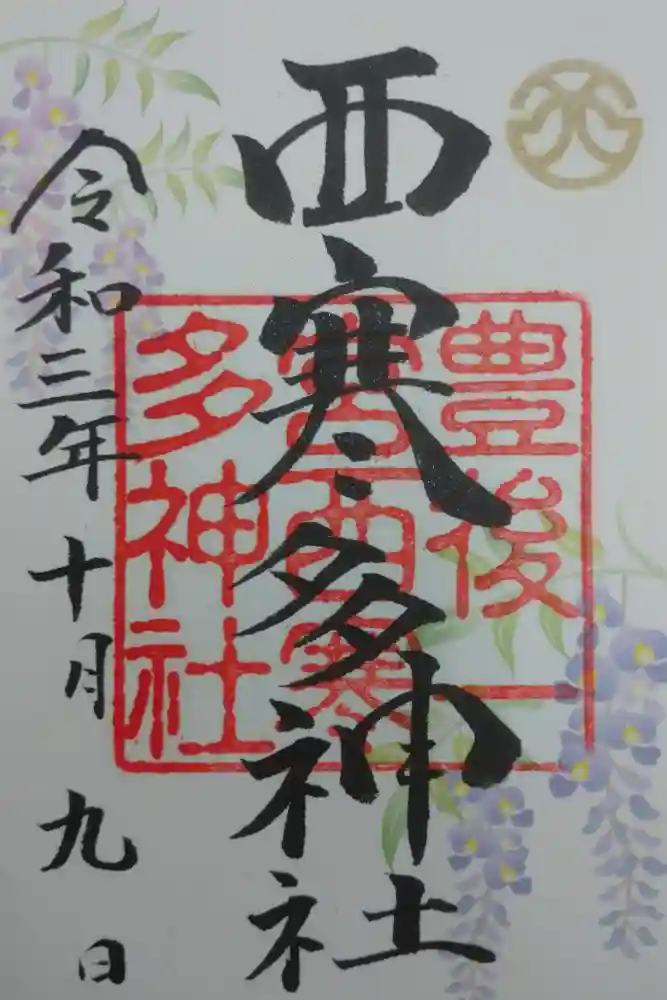 豊後一
宮西寒
多神社
西寒多神社
令和三年十月九日